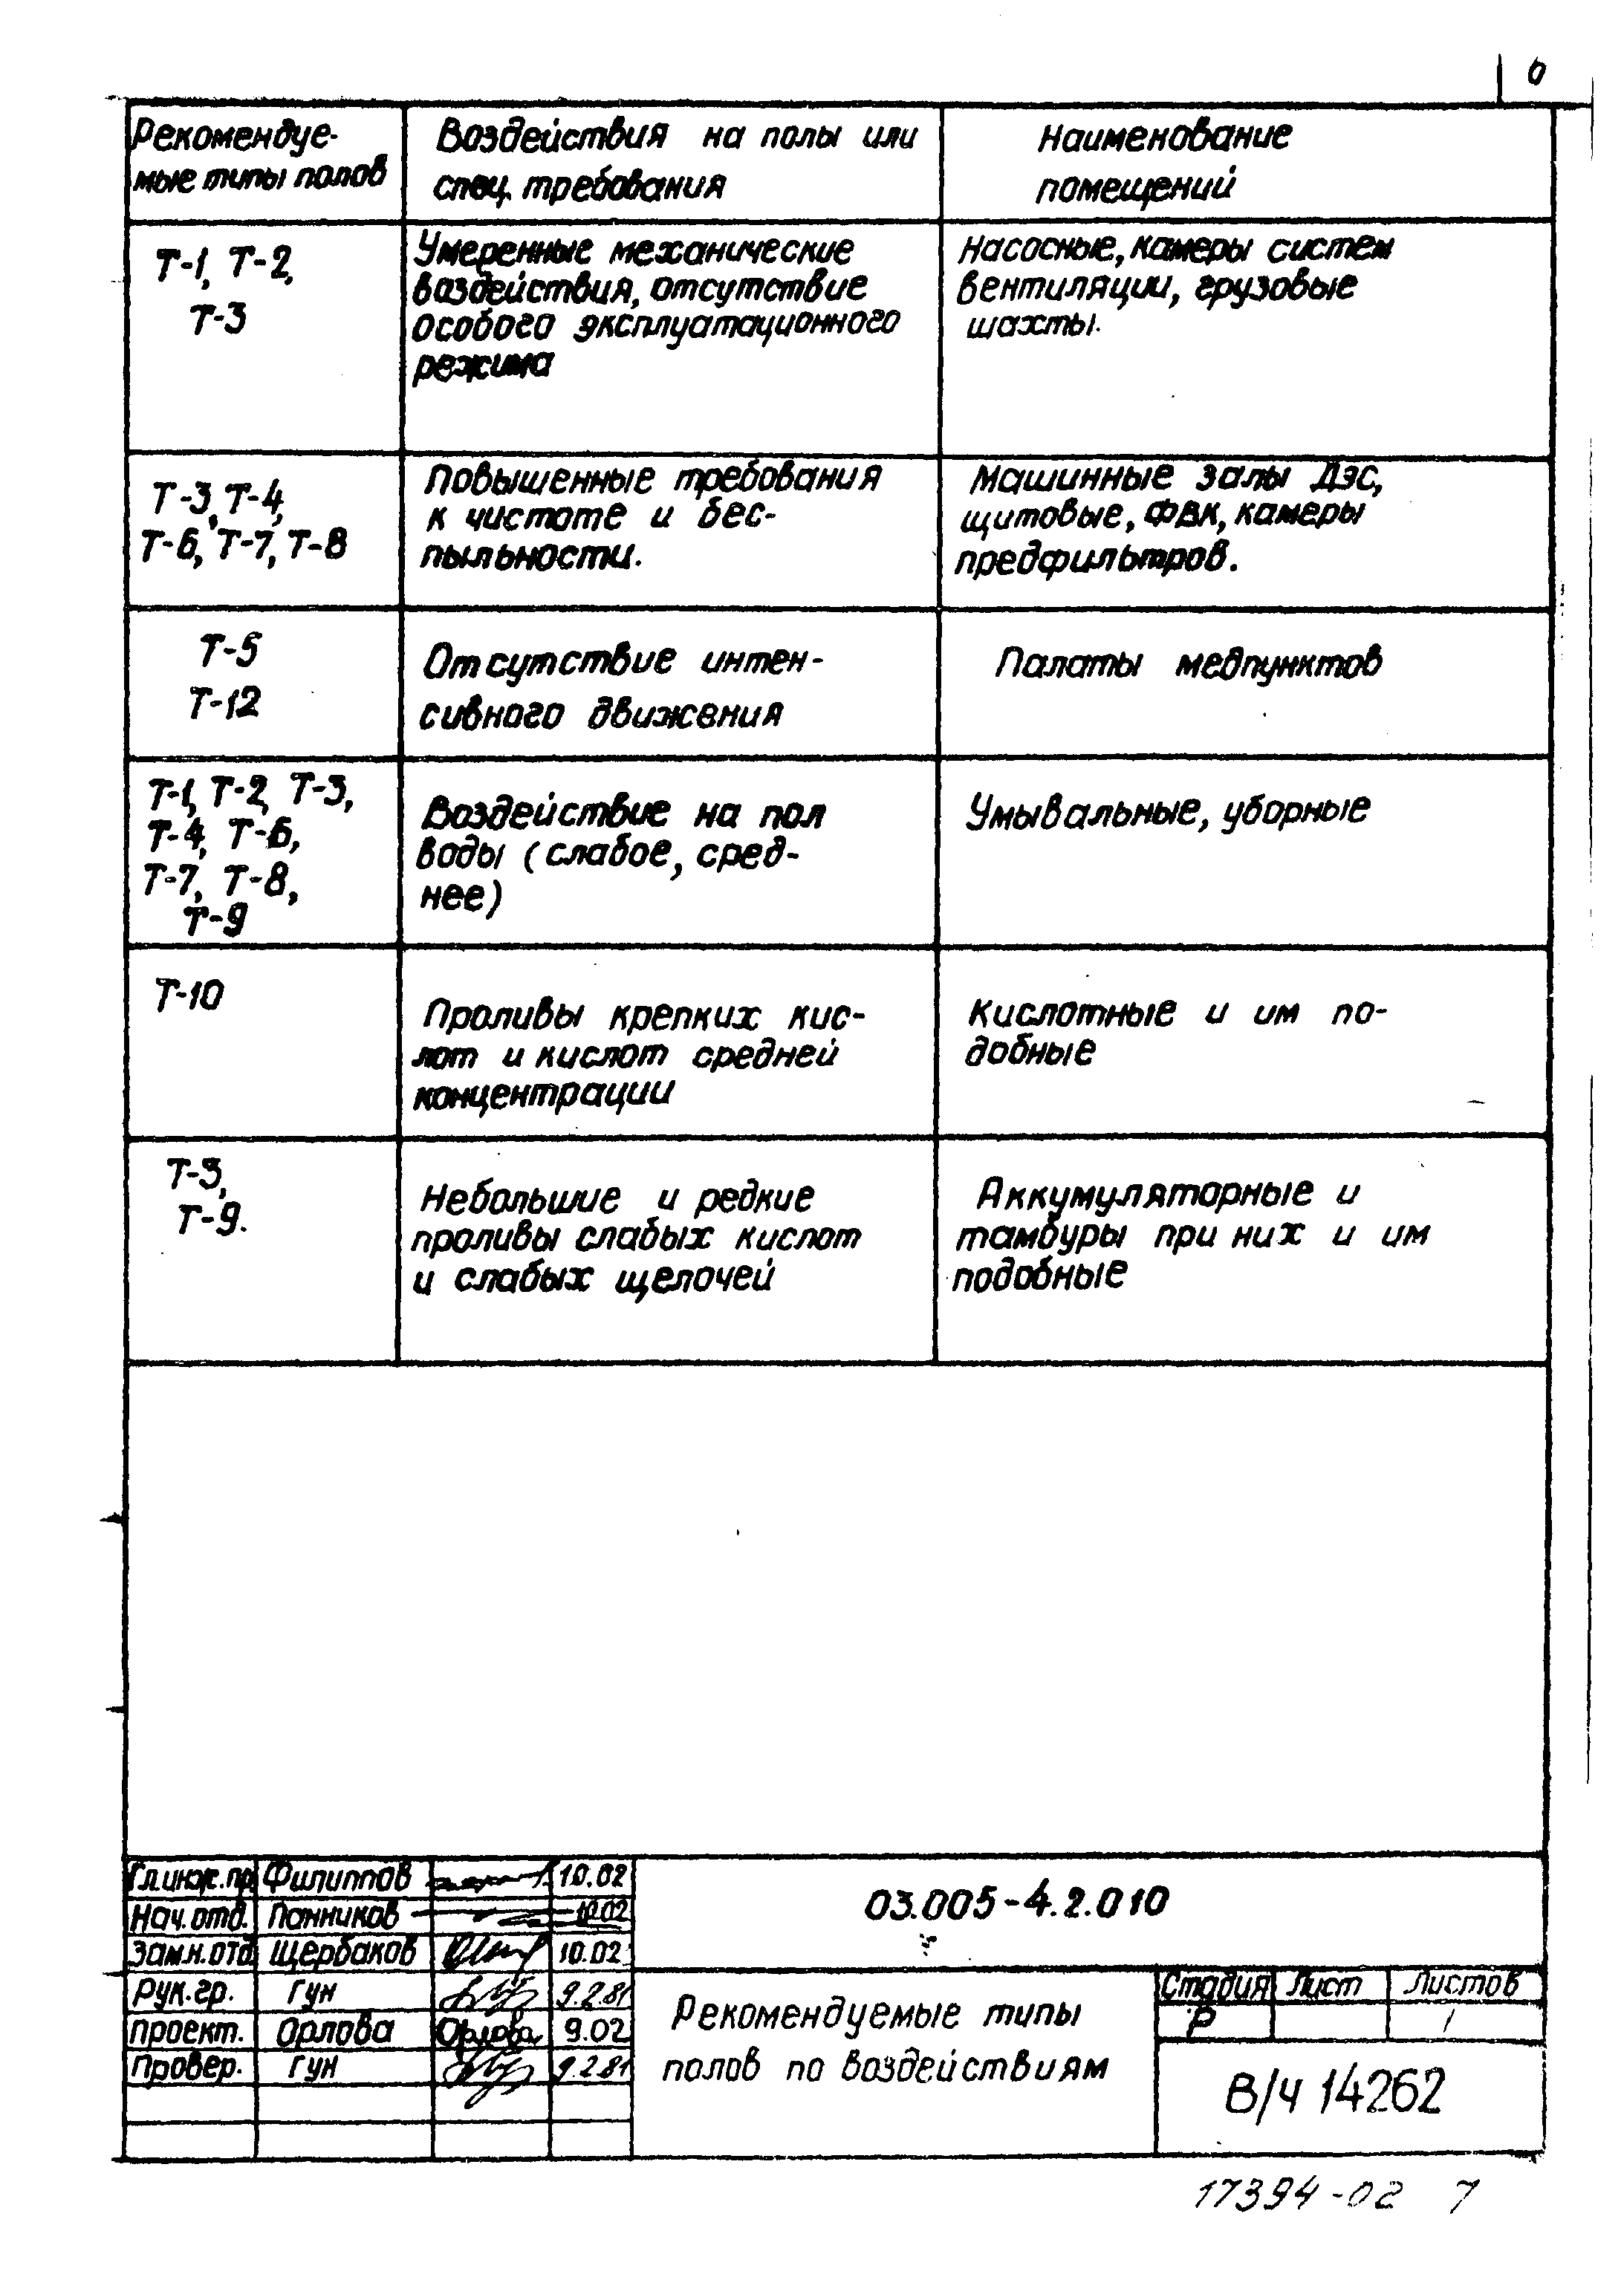 0
Рекомендуе-
мые типы полов
Воздействия на полы или
спец. требования
Наименование
помещений
Т-1, Т-2,
Т-3
Умеренные механические
воздействия, отсутствие
особого эксплуатационного
режима
Насосные, камеры систем
вентиляции, грузовые
шахты.
Т-3, Т-4,
Т-6, Т-7, Т-8
Повышенные требования
к чистоте и бес-
пыльности.
Машинные залы ДЭС,
щитовые, ФВК, камеры
предфильтров.
Т-5
Т-12
Отсутствие интен-
сивного движения
Палаты медпунктов
Т-1, Т-2, Т-3,
Т-4, Т-6,
Т-7, Т-8,
Т-9
Воздействие на пол
воды (слабое, сред-
нее)
Умывальные, уборные
Т-10
Проливы крепких кис-
лот и кислот средней
концентрации
Кислотные и им по-
добные
Т-3,
Т-9.
Небольшие и редкие
проливы слабых кислот
и слабых щелочей
Аккумуляторные и
тамбуры при них и им
подобные
Гл.инж.пр. Филиппов 10.02
Нач.отд. Панников 10.02
Зам.н.отд. Щербаков 10.02
Рук.гр. Гун 9.2.81
Проект. Орлова Орлова 9.02
Провер. Гун 9.2.81
03.005-4.2.010
Рекомендуемые типы
полов по воздействиям
Стадия Лист Листов
Р 1
В/ч 14262
17394-02 7